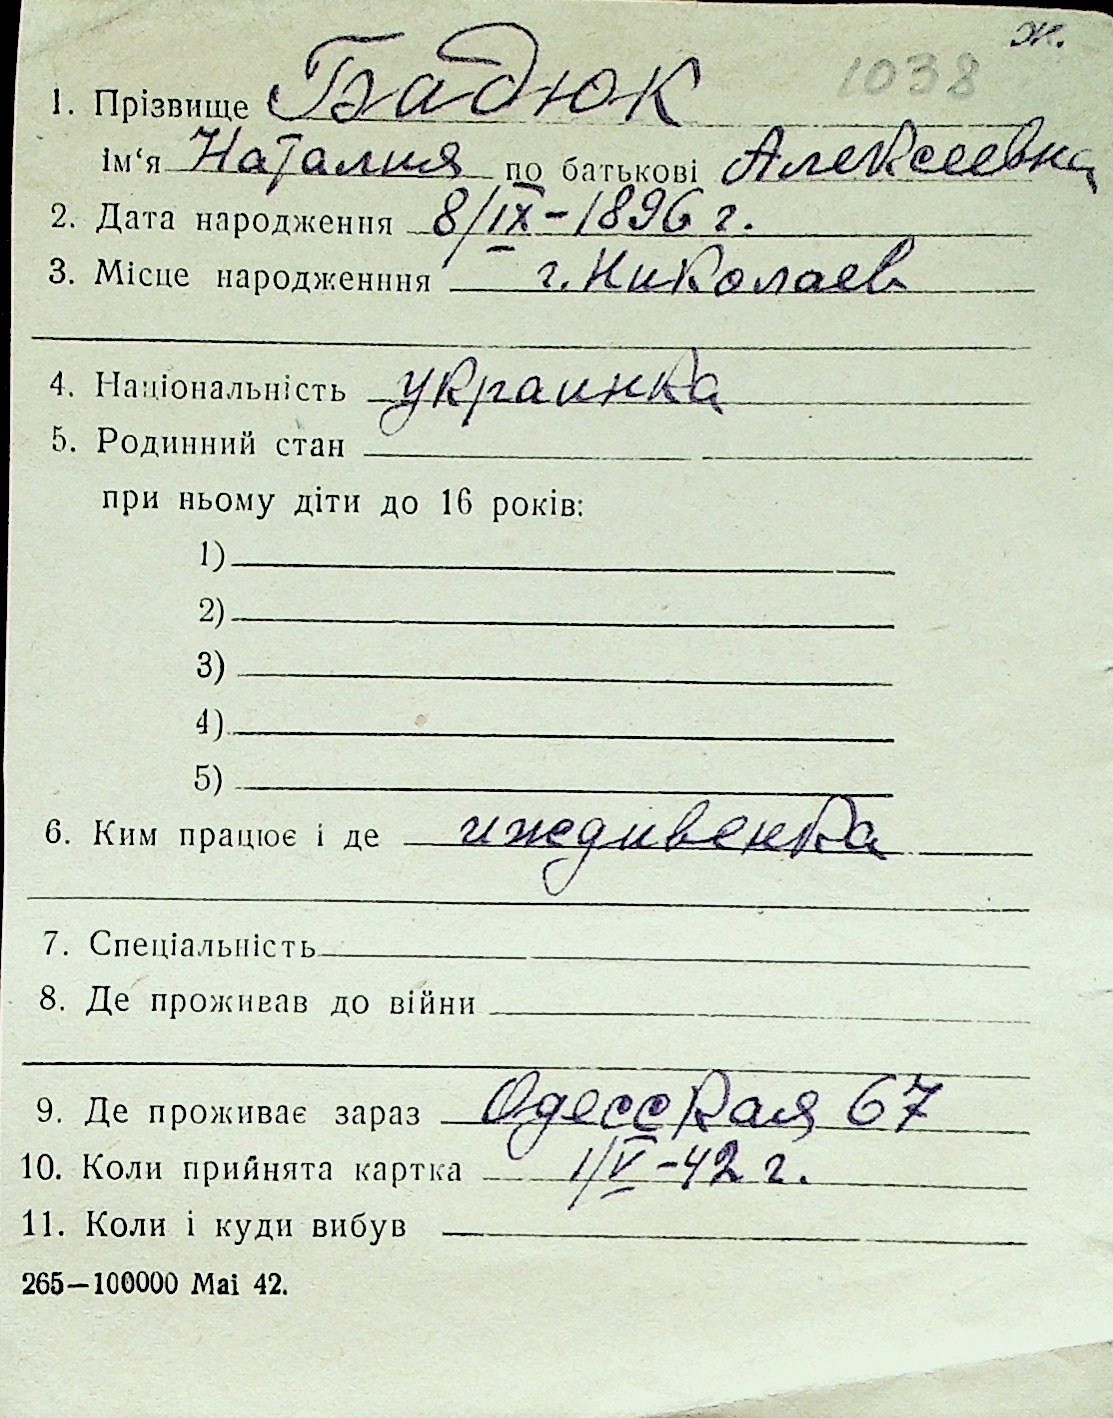 ж.
1038
1. Прізвище Бадюк
ім‘я Наталия по батькові Алексеевна
2. Дата народження 8/IX-1896 г.
3. Місце народженння г. Николаев
4. Національність украинка
5. Родинний стан
при ньому діти до 16 років:
1)
2)
3)
4)
5)
6. Ким працює і де иждивенка
7. Спеціальність
8. Де проживав до війни
9. Де проживає зараз Одесская 67
10. Коли прийнята картка 1/V-42 г.
11. Коли і куди вибув
265—100000 Mai 42.